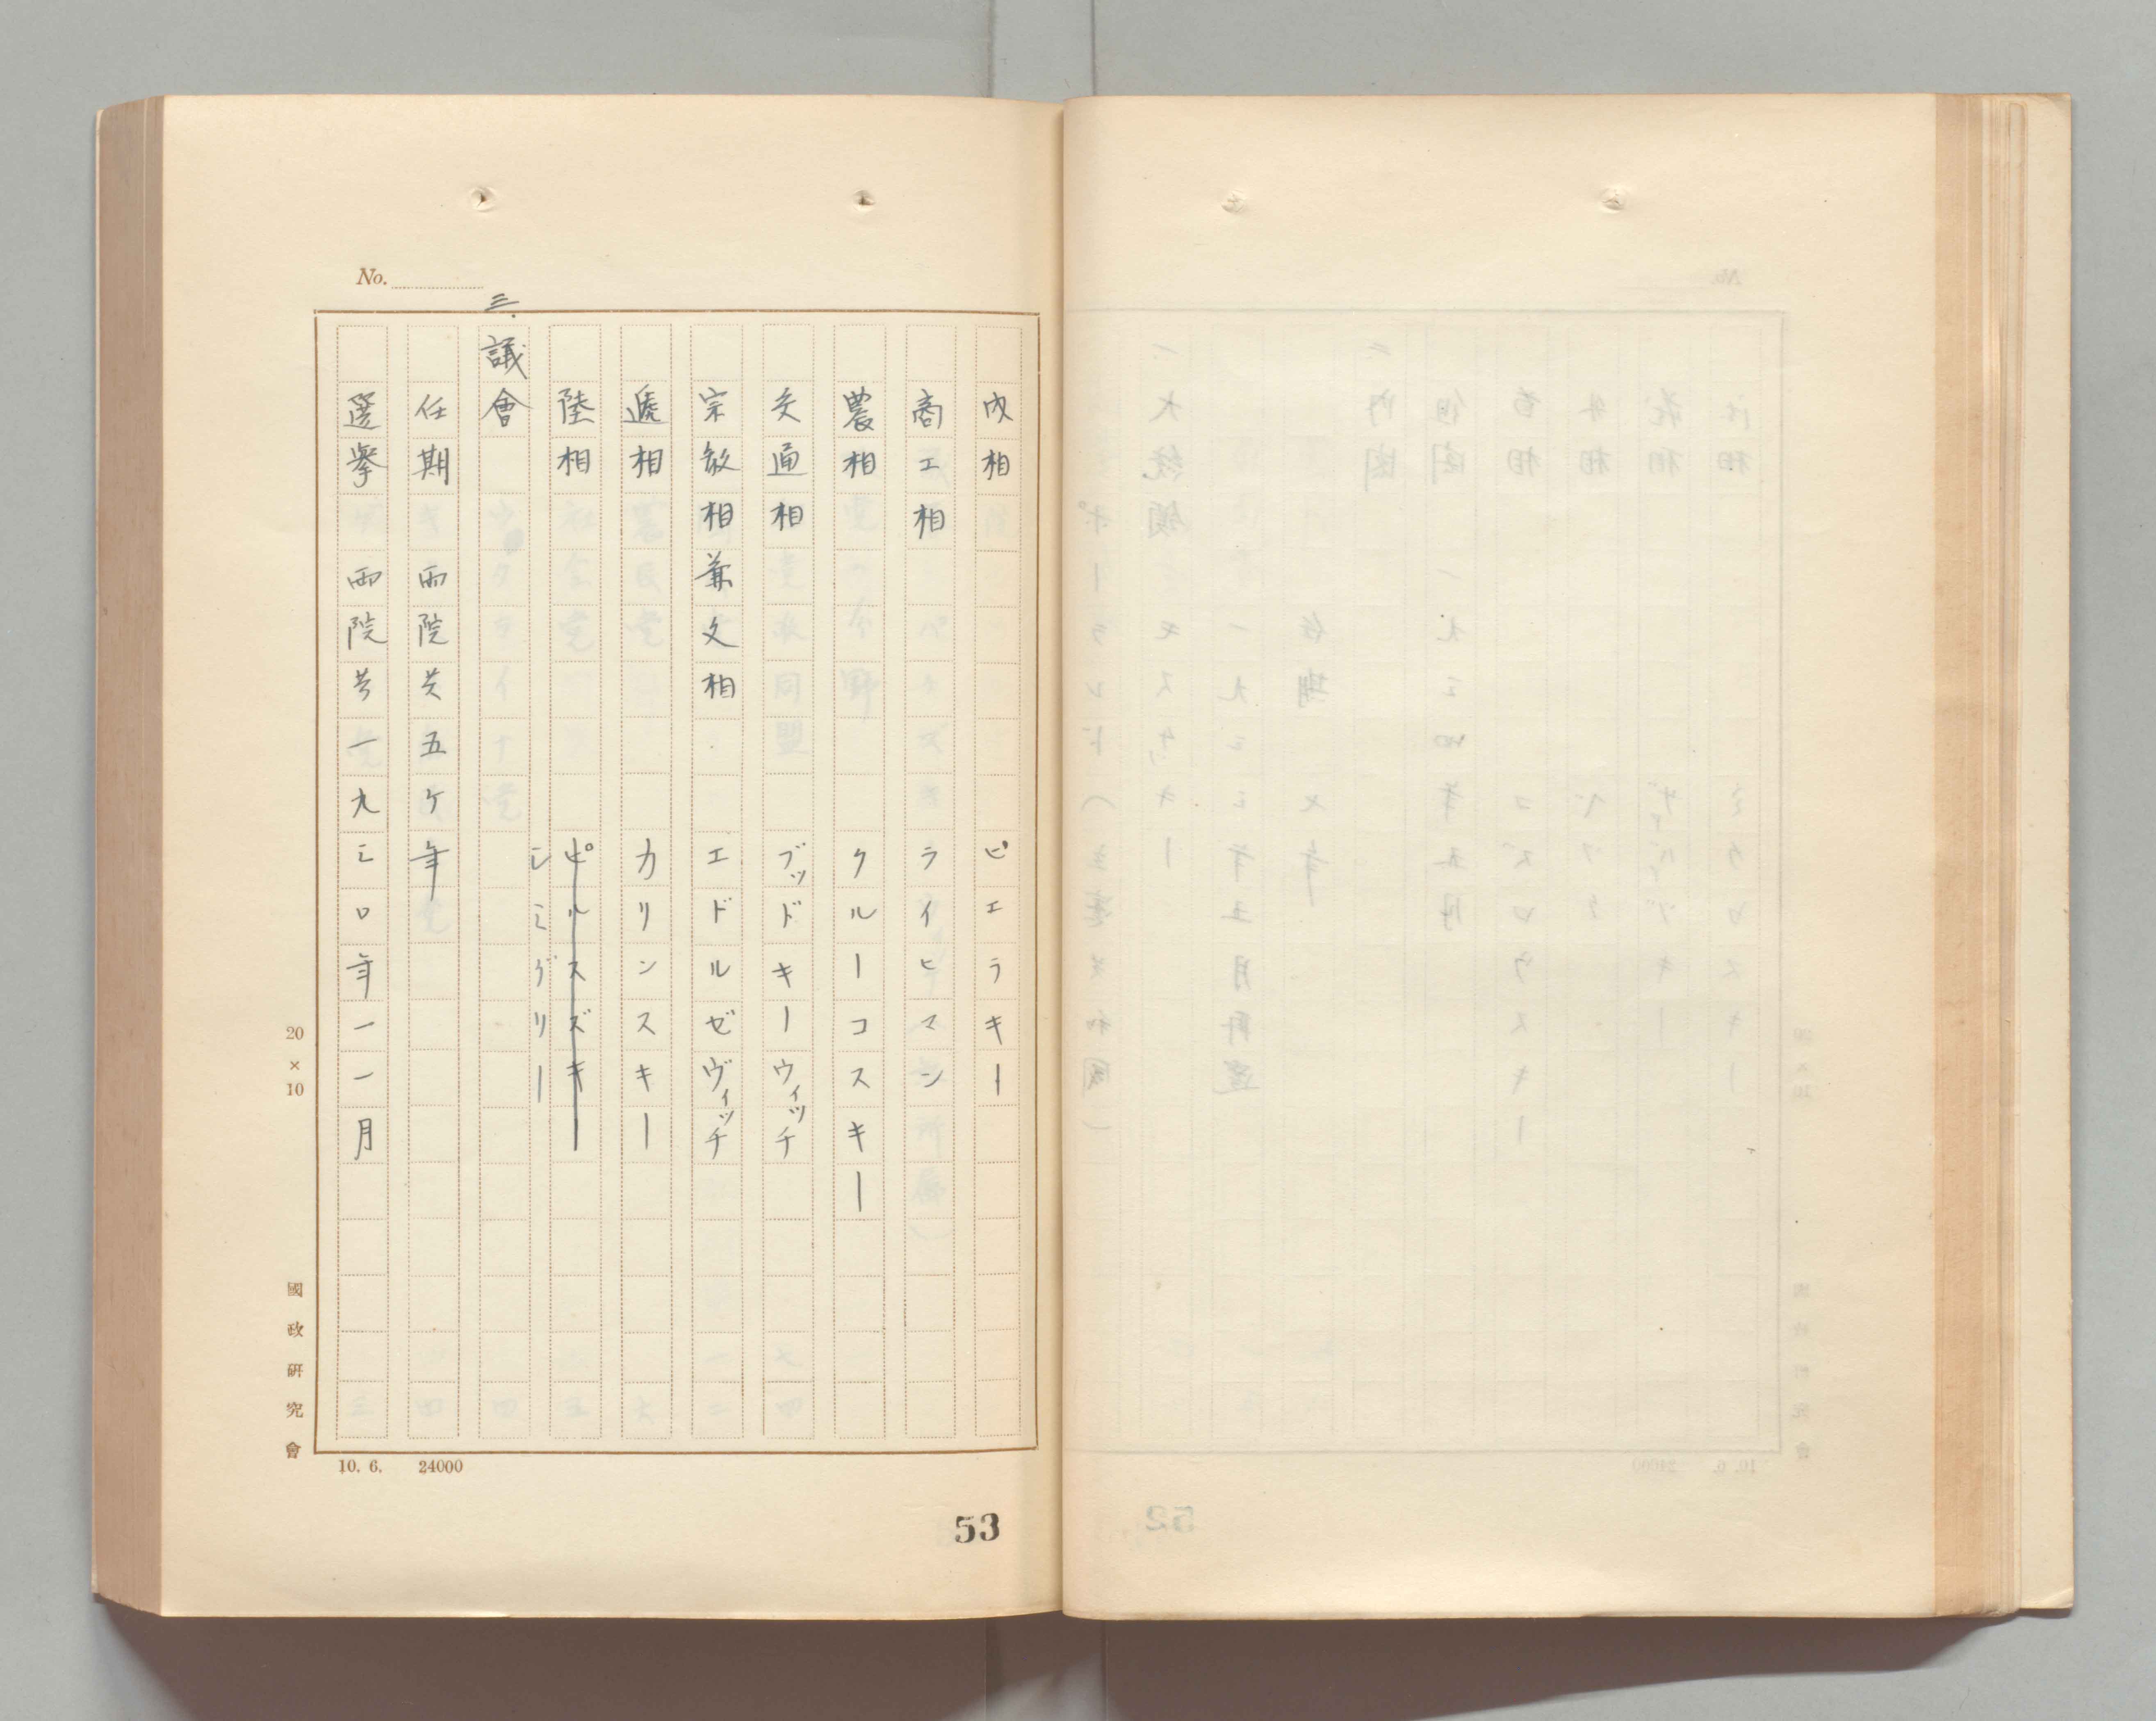 No.
内相 ピエラキー
商工相 ライヒマン
農相 クルーコスキー
交通相 ブッドキーウィッチ
宗教相兼文相 エドルゼヴィッチ
逓相 カリンスキー
陸相 ピルスズキー
シミグリー
三、議會
任期 両院共五ケ年
選挙 両院共一九三〇年一一月
20×10
國政研究會
10. 6. 24000
53